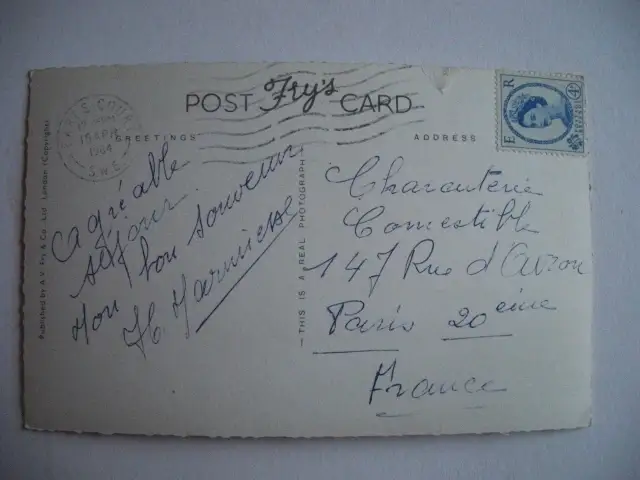 POST Fry's CARD
GREETINGS
ADDRESS
EARLS COURT
15 APR
1964
S.W.5
E R
4D
agréable
séjour.
Mon bon souvenir
H.
Charcuterie
Comestible
147 Rue d'Avron
Paris 20eme
France
THIS IS A REAL PHOTOGRAPH
Published by A.V. Fry & Co., Ltd. London (Copyright)